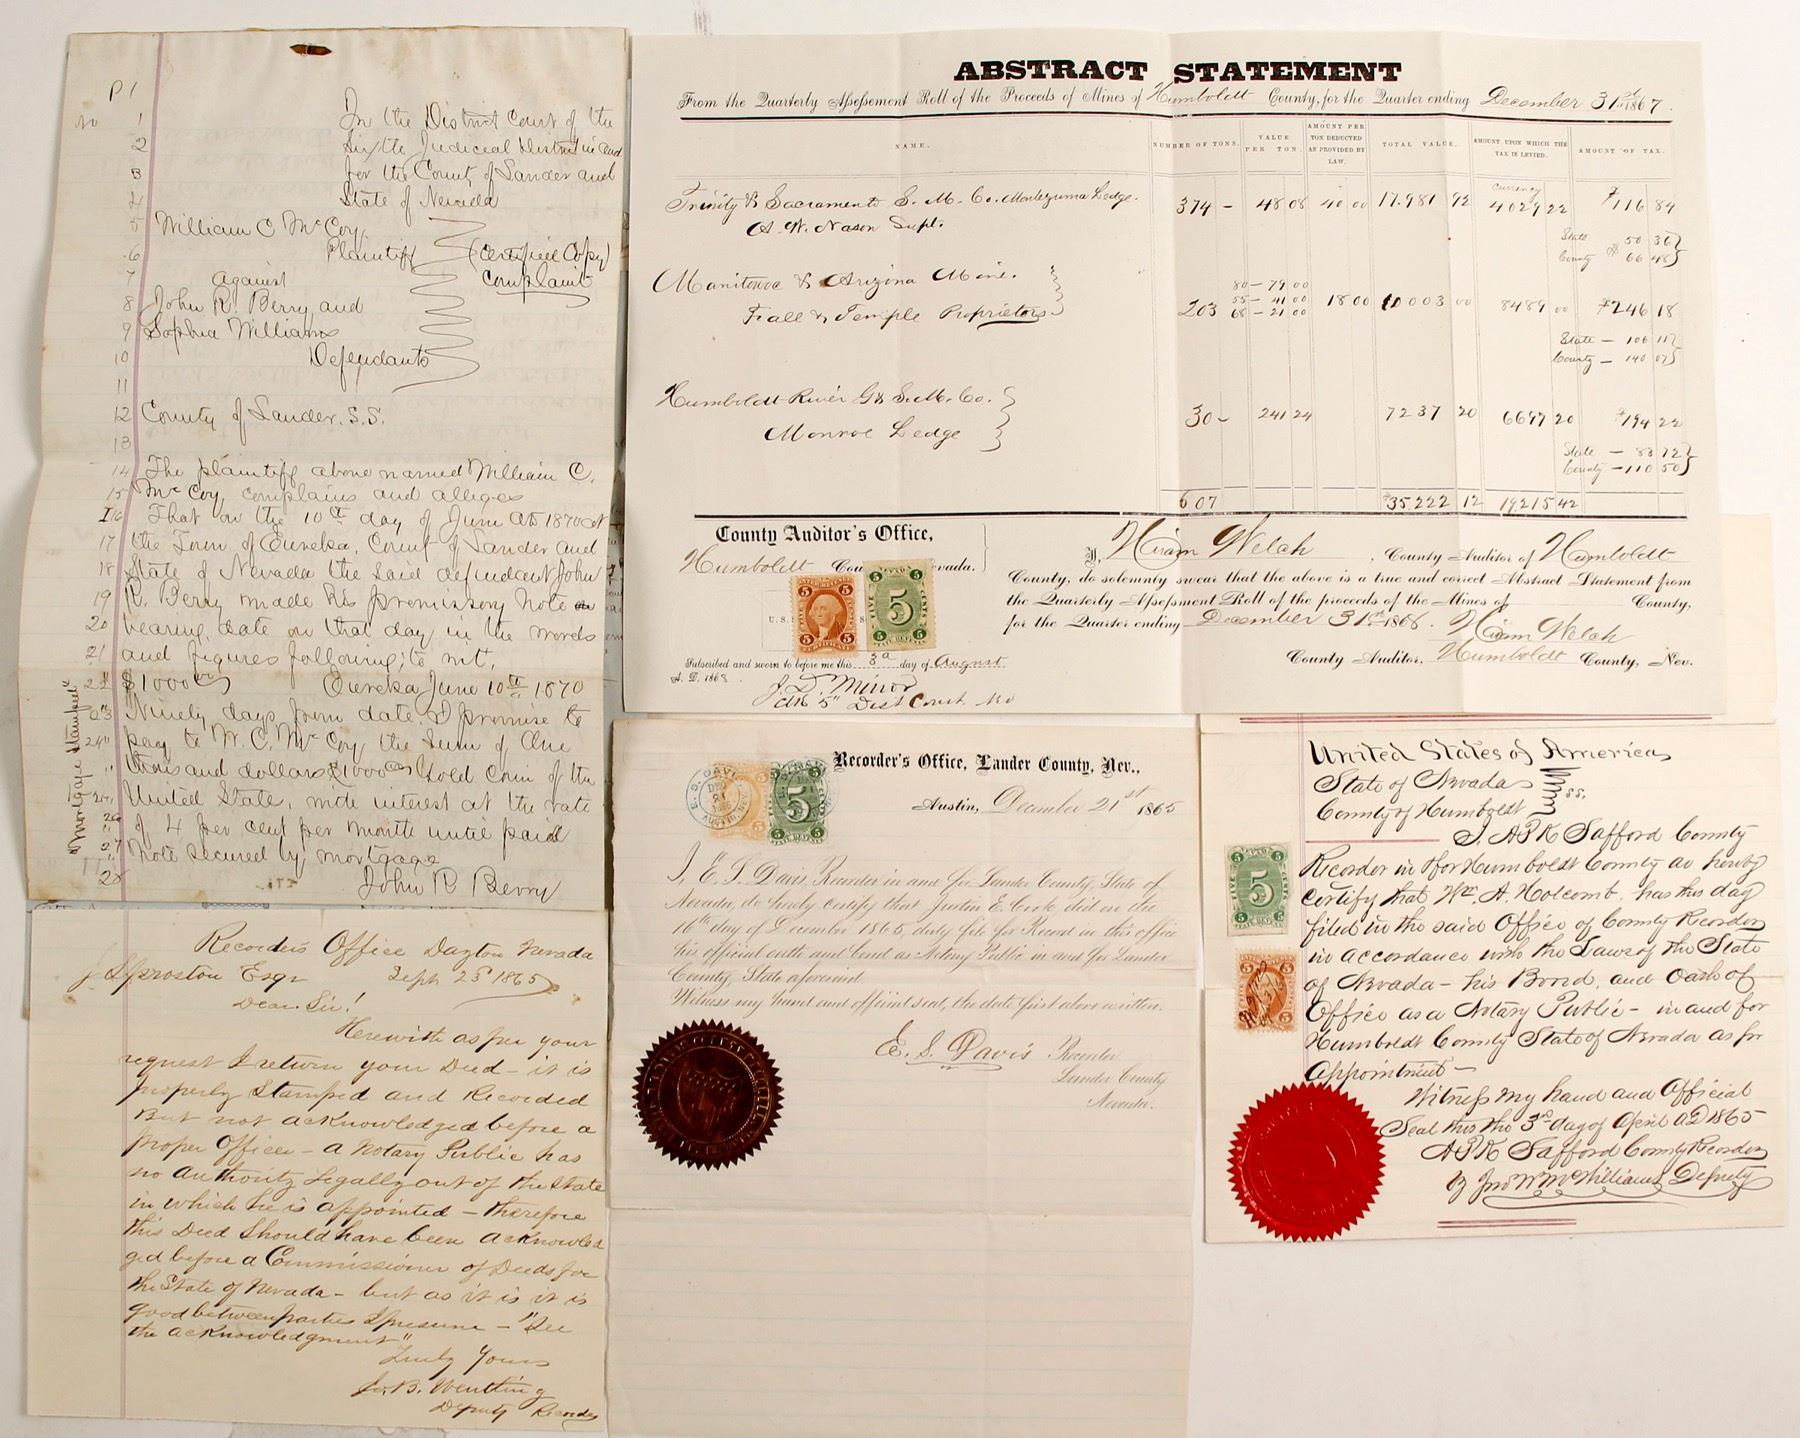 P1
No 1 In the District Court of the
2 Sixth Judicial District in and
3 for the County of Lander and
4 State of Nevada
5 William C McCoy
6 Plaintiff (Certified Copy)
7 Against complaint
8 John R. Berry and
9 Sophia Williams
10 Defendants
11
12 County of Lander. S.S.
13
14 The plaintiff above named William C.
15 McCoy, complains and alleges
16 That on the 10th day of June AD 1870 at
17 the Town of Eureka, County of Lander and
18 State of Nevada the said defendant John
19 R. Berry made his promissory note
20 bearing date on that day in the words
21 and figures following; to wit,
22 $1000 Eureka June 10th 1870
23 Ninety days from date I promise to
24 pay to W. C. McCoy the Sum of One
thousand dollars $1000 Gold Coin of the
United State, with interest at the rate
26 of 4 per cent per month until paid
27 Note secured by mortgage
28 John R Berry
Mortgage Stamped
ABSTRACT STATEMENT
From the Quarterly Assessment Roll of the Proceeds of Mines of Humboldt County, for the Quarter ending December 31st 1867.
NAME. NUMBER OF TONS. VALUE PER TON. AMOUNT PER TON DEDUCTED AS PROVIDED BY LAW. TOTAL VALUE. AMOUNT UPON WHICH THE TAX IS LEVIED. AMOUNT OF TAX.
currency
Trinity & Sacramento S. M. Co. Montezuma Ledge. 374 - 48 08 40 00 17.981 92 4029 22 $116 84
A. W. Nason Supt.
State $ 50 36
County 66 48
Manitowoc & Arizona Mine.
80 - 79 00
55 - 41 00
68 - 21 00
Fall & Temple Proprietors 203 18 00 10 003 00 8489 00 $246 18
State - 106 11
County - 140 07
Humboldt River G & S. M. Co.
Monroe Ledge 30 - 241 24 7237 20 6697 20 $194 22
State - 83 72
County - 110 50
607 $35,222 12 19,215 42
County Auditor's Office,
Humboldt County, Nevada.
5 5
U.S.
Subscribed and sworn to before me this 3d day of August
A. D. 1868.
J. D. Minor
Clk 5th Dist Court
I, Hiram Welch, County Auditor of Humboldt
County, do solemnly swear that the above is a true and correct Abstract Statement from
the Quarterly Assessment Roll of the proceeds of the Mines of County,
for the Quarter ending December 31st 1868. Hiram Welch
County Auditor, Humboldt County, Nev.
Recorder's Office, Lander County, Nev.,
Austin, December 21st 1865
E. S. DAVIS
5
I, E. S. Davis, Recorder in and for Lander County, State of
Nevada, do hereby certify that Justin E. Cook, did on the
16th day of December 1865, duly file for Record in this office
his official oath and bond as Notary Public in and for Lander
County, State aforesaid
Witness my hand and official seal, the date first above written.
E. S. Davis Recorder
Lander County
Nevada.
United States of America
State of Nevada
County of Humboldt ss.
I, A P K Safford County
Recorder in & for Humboldt County do hereby
Certify that Wm. A. Holcomb has this day
filed in the said Office of County Recorder
in accordance with the Laws of the State
of Nevada - his Bond, and Oath of
Office as a Notary Public - in and for
Humboldt County State of Nevada as per
Appointment -
Witness my hand and Official
Seal this the 3rd day of April AD 1865
A P K Safford County Recorder
By Jno W McWilliams Deputy
5
Recorders Office Dayton Nevada
J Sproston Esqr Sept 25th 1865
Dear Sir!
Herewith as per your
request I return your Deed - it is
properly Stamped and Recorded
But not acknowledged before a
proper Officer - a Notary Public has
no Authority Legally out of the State
in which he is appointed - therefore
this Deed Should have been acknowled
ged before a Commissioner of Deeds for
the State of Nevada - but as it is it is
good between parties I presume - "See
the acknowledgment"
Truly Yours
B. Wentling
Deputy Recorder